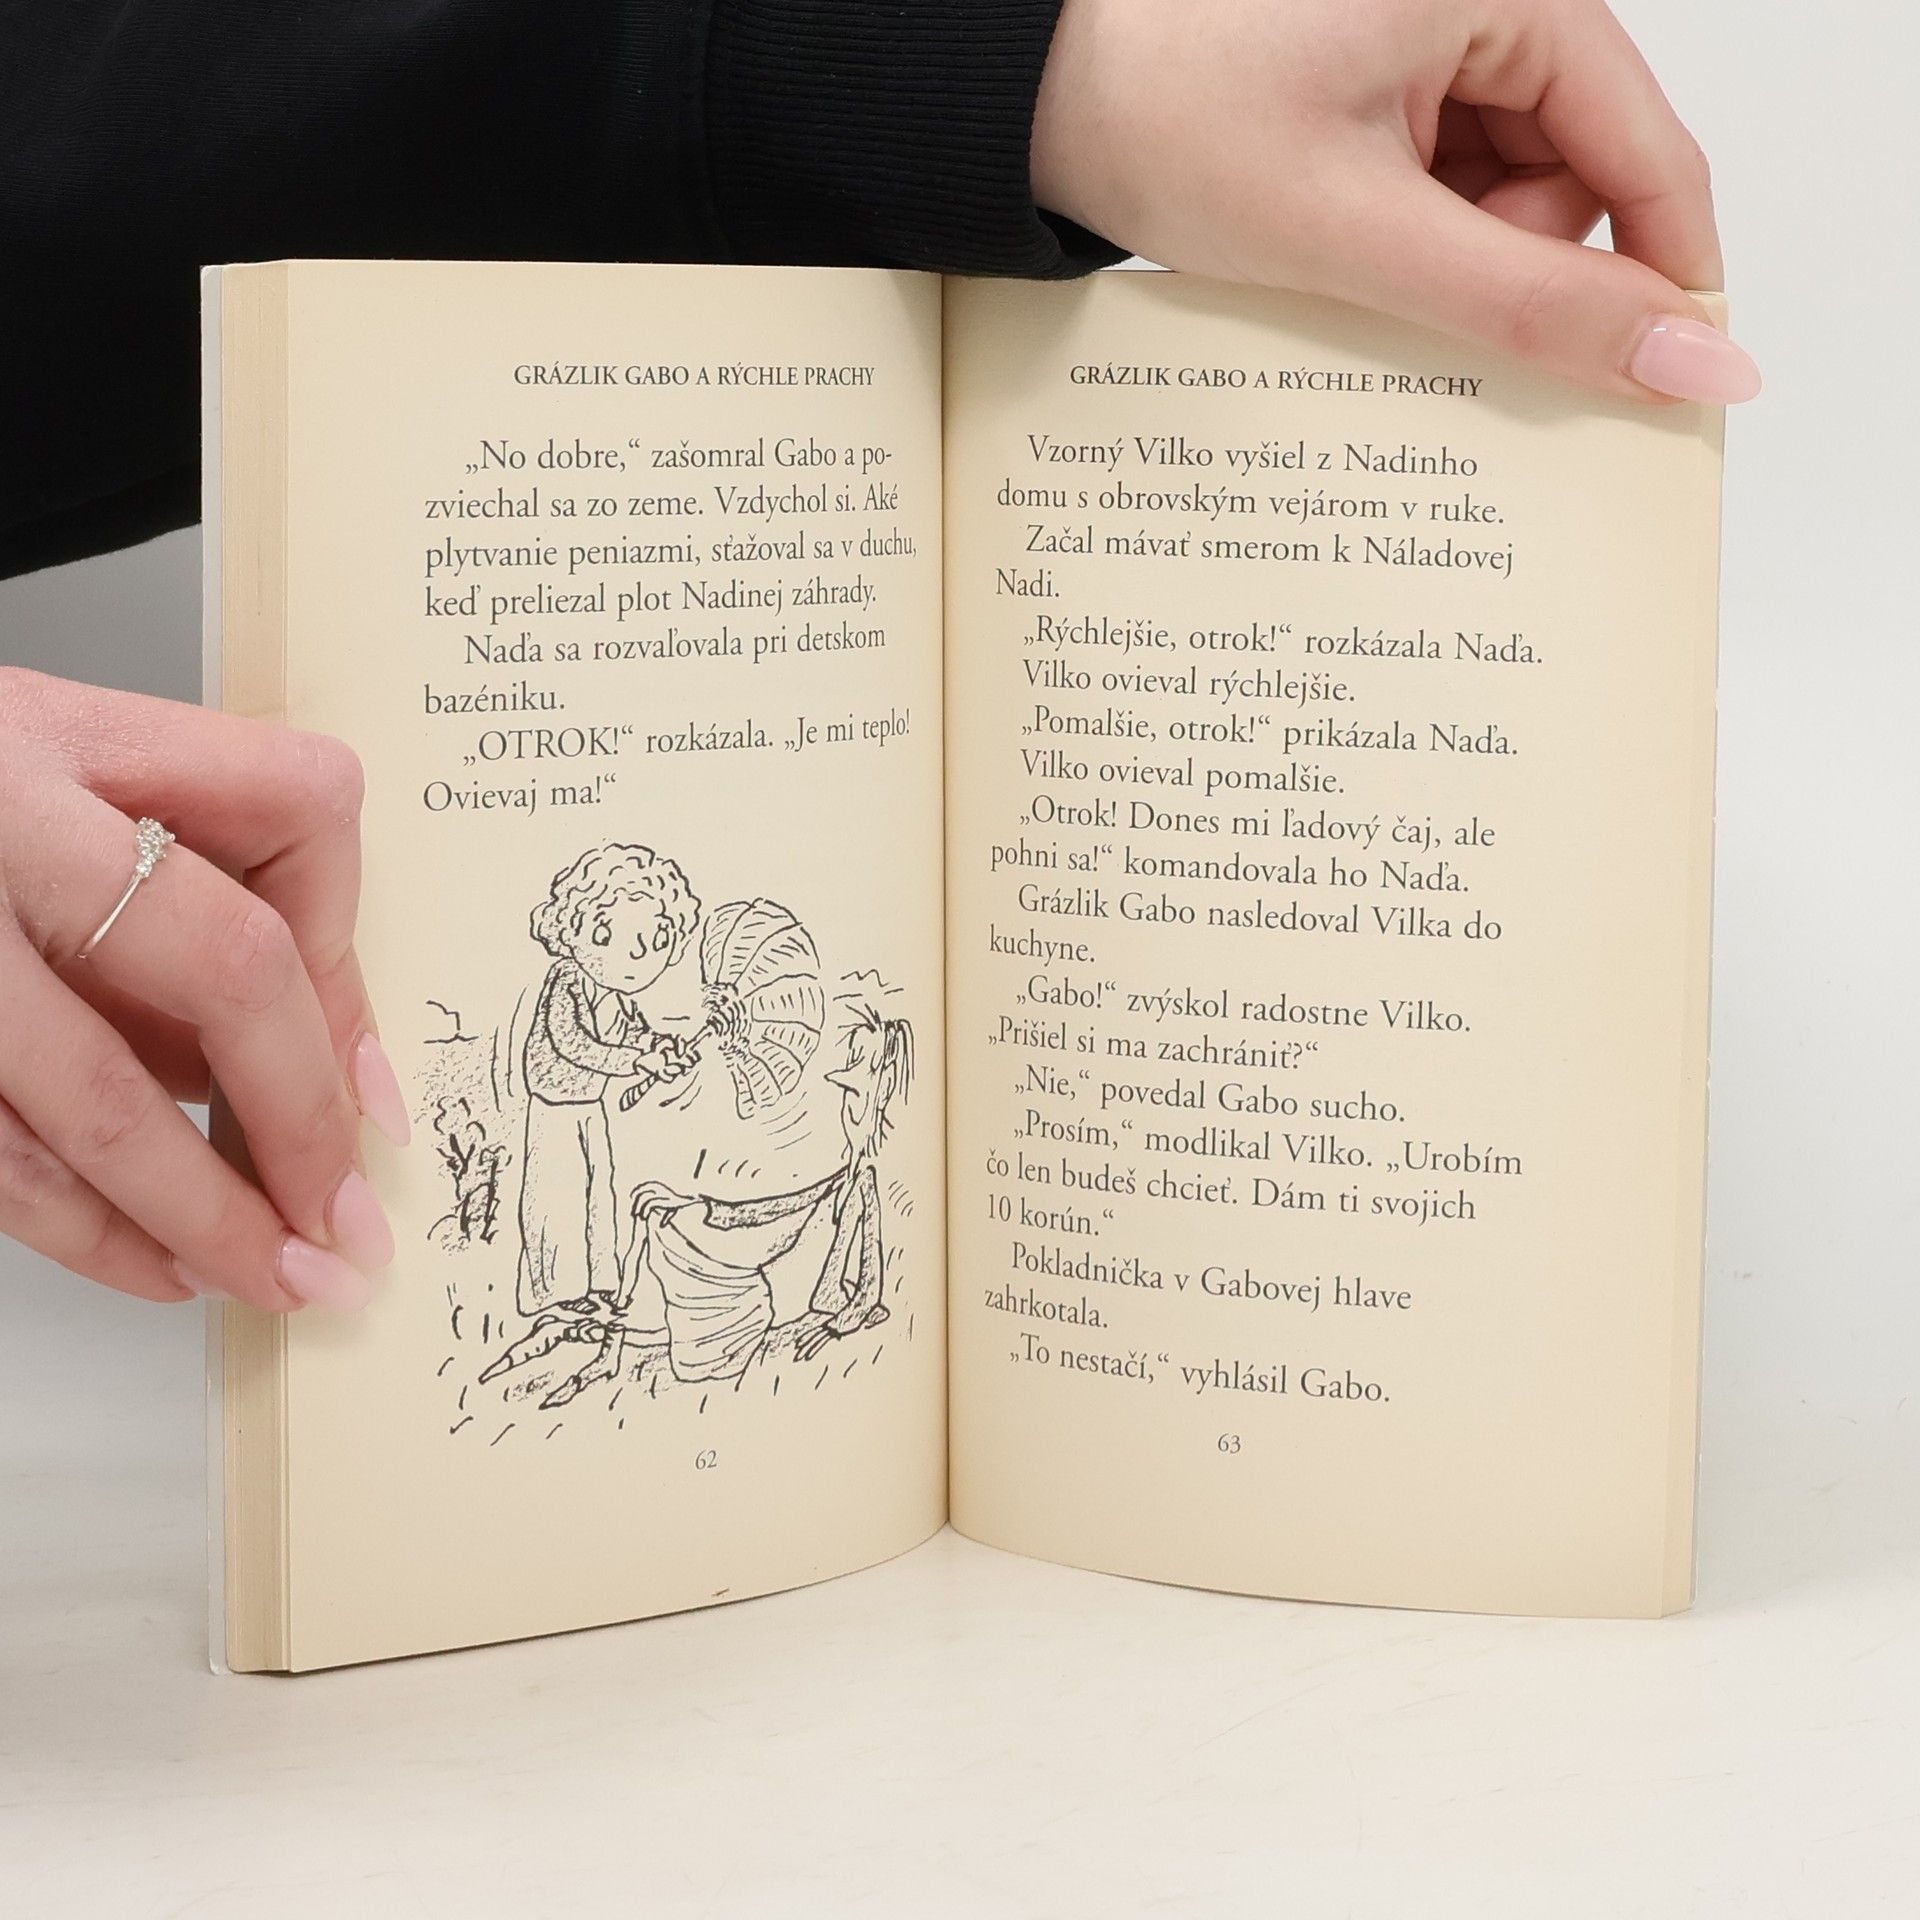 GRÁZLIK GABO A RÝCHLE PRACHY
„No dobre,“ zašomral Gabo a po-
zviechal sa zo zeme. Vzdychol si. Aké
plytvanie peniazmi, sťažoval sa v duchu,
keď preliezal plot Nadinej záhrady.
Naďa sa rozvaľovala pri detskom
bazéniku.
„OTROK!“ rozkázala. „Je mi teplo!
Ovievaj ma!“
62
GRÁZLIK GABO A RÝCHLE PRACHY
Vzorný Vilko vyšiel z Nadinho
domu s obrovským vejárom v ruke.
Začal mávať smerom k Náladovej
Nadi.
„Rýchlejšie, otrok!“ rozkázala Naďa.
Vilko ovieval rýchlejšie.
„Pomalšie, otrok!“ prikázala Naďa.
Vilko ovieval pomalšie.
„Otrok! Dones mi ľadový čaj, ale
pohni sa!“ komandovala ho Naďa.
Grázlik Gabo nasledoval Vilka do
kuchyne.
„Gabo!“ zvýskol radostne Vilko.
„Prišiel si ma zachrániť?“
„Nie,“ povedal Gabo sucho.
„Prosím,“ modlikal Vilko. „Urobím
čo len budeš chcieť. Dám ti svojich
10 korún.“
Pokladnička v Gabovej hlave
zahrkotala.
„To nestačí,“ vyhlásil Gabo.
63